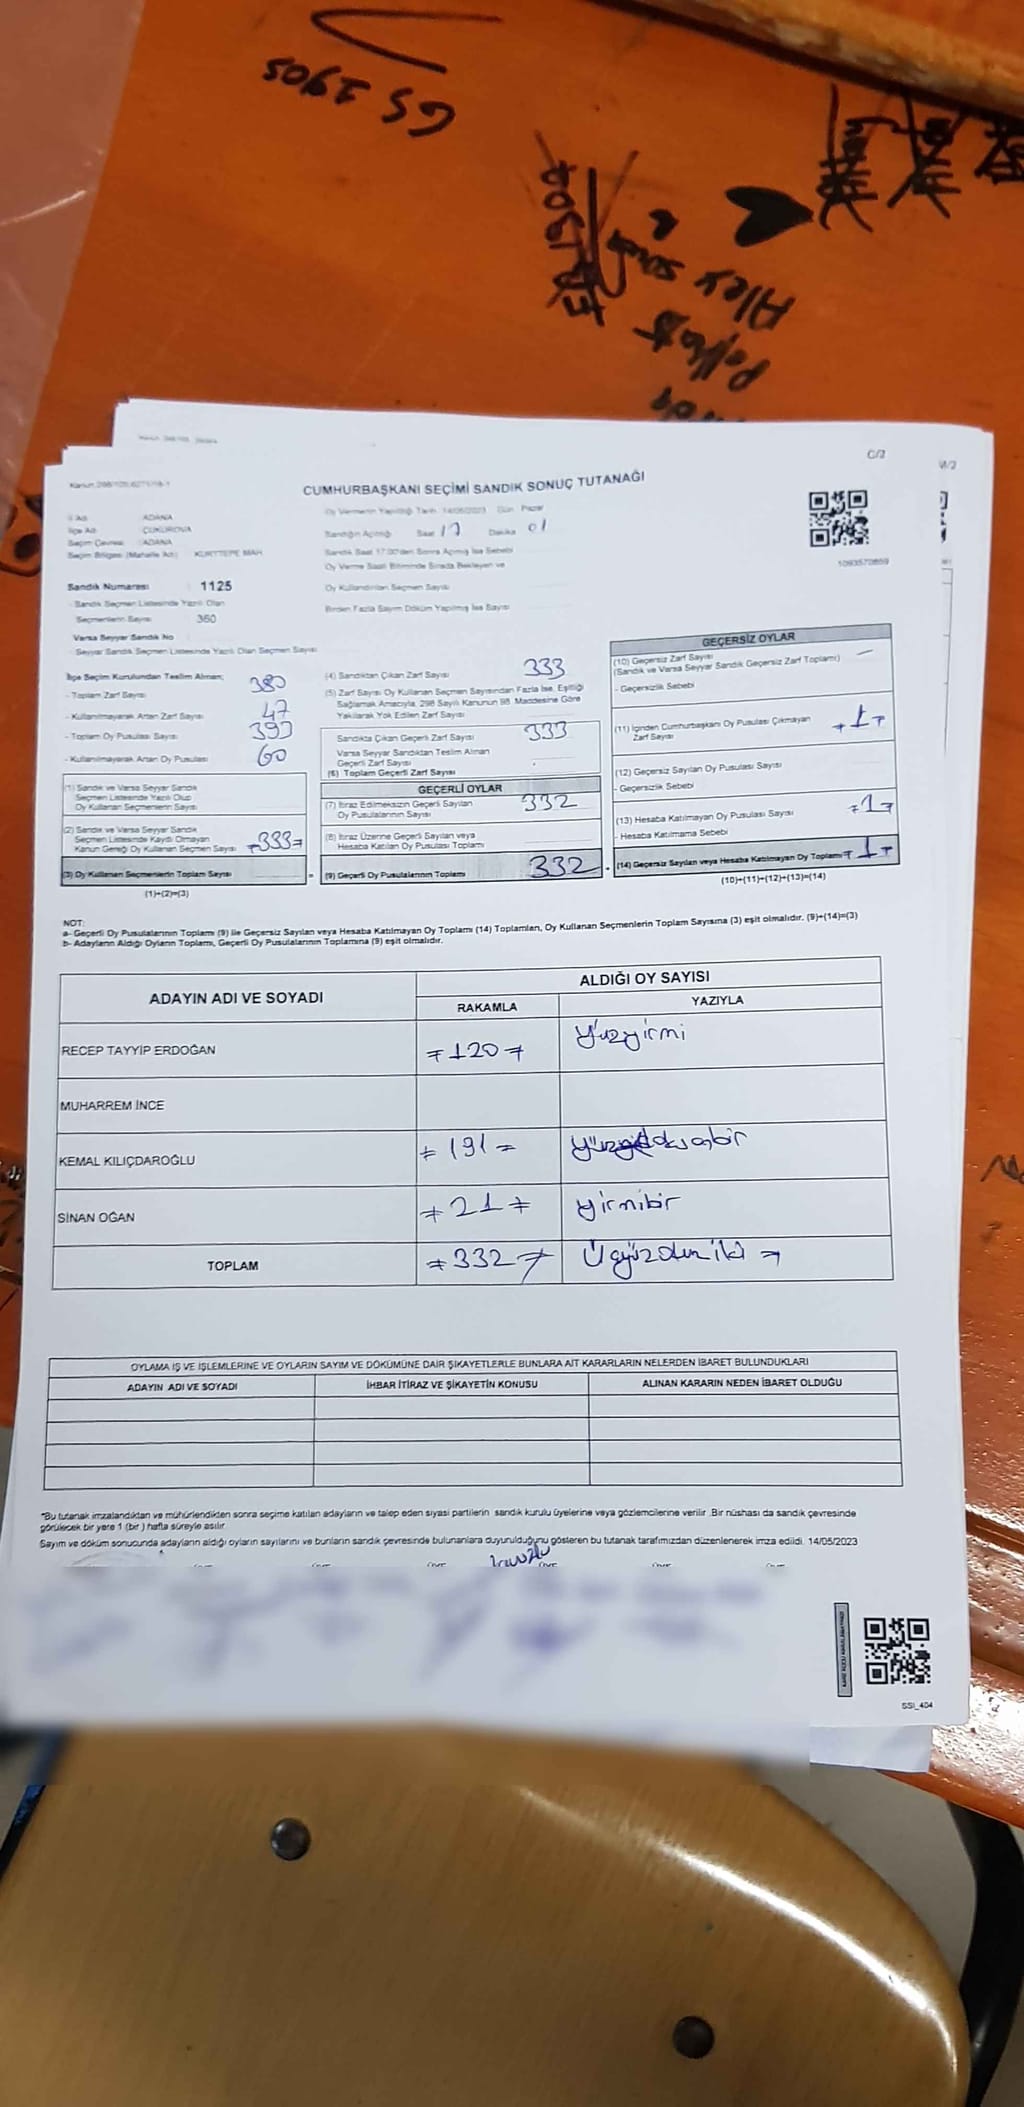 GS 1905
Alex
C/2
CUMHURBAŞKANI SEÇİMİ SANDIK SONUÇ TUTANAĞI
Oy Vermenin Yapıldığı Tarih 14/05/2023 Gün Pazar
İl Adı : ADANA
İlçe Adı : ÇUKUROVA
Seçim Çevresi : ADANA
Seçim Bölgesi (Mahalle Adı) : KURTTEPE MAH
Sandığın Açıldığı Saat 17 Dakika 01
Sandık Saat 17:00'den Sonra Açılmış İse Sebebi
Oy Verme Saati Bitiminde Sırada Bekleyen ve
Oy Kullandırılan Seçmen Sayısı
Birden Fazla Sayım Döküm Yapılmış İse Sayısı
1093570869
Sandık Numarası : 1125
- Sandık Seçmen Listesinde Yazılı Olan
Seçmenlerin Sayısı : 360
Varsa Seyyar Sandık No
- Seyyar Sandık Seçmen Listesinde Yazılı Olan Seçmen Sayısı
İlçe Seçim Kurulundan Teslim Alınan;
- Toplam Zarf Sayısı 380
- Kullanılmayarak Artan Zarf Sayısı 47
- Toplam Oy Pusulası Sayısı 393
- Kullanılmayarak Artan Oy Pusulası 60
(1) Sandık ve Varsa Seyyar Sandık
Seçmen Listesinde Yazılı Olup
Oy Kullanan Seçmenlerin Sayısı
(2) Sandık ve Varsa Seyyar Sandık
Seçmen Listesinde Kaydı Olmayan
Kanun Gereği Oy Kullanan Seçmen Sayısı 333
(3) Oy Kullanan Seçmenlerin Toplam Sayısı
(1)+(2)=(3)
(4) Sandıktan Çıkan Zarf Sayısı 333
(5) Zarf Sayısı Oy Kullanan Seçmen Sayısından Fazla İse, Eşitliği
Sağlamak Amacıyla, 298 Sayılı Kanunun 98. Maddesine Göre
Yakılarak Yok Edilen Zarf Sayısı
Sandıkta Çıkan Geçerli Zarf Sayısı 333
Varsa Seyyar Sandıktan Teslim Alınan
Geçerli Zarf Sayısı
(6) Toplam Geçerli Zarf Sayısı
GEÇERLİ OYLAR
(7) İtiraz Edilmeksizin Geçerli Sayılan
Oy Pusulalarının Sayısı 332
(8) İtiraz Üzerine Geçerli Sayılan veya
Hesaba Katılan Oy Pusulası Toplamı
(9) Geçerli Oy Pusulalarının Toplamı 332
GEÇERSİZ OYLAR
(10) Geçersiz Zarf Sayısı
(Sandık ve Varsa Seyyar Sandık Geçersiz Zarf Toplamı)
- Geçersizlik Sebebi
(11) İçinden Cumhurbaşkanı Oy Pusulası Çıkmayan
Zarf Sayısı 1
(12) Geçersiz Sayılan Oy Pusulası Sayısı
- Geçersizlik Sebebi
(13) Hesaba Katılmayan Oy Pusulası Sayısı 1
- Hesaba Katılmama Sebebi
(14) Geçersiz Sayılan veya Hesaba Katılmayan Oy Toplamı 1
(10)+(11)+(12)+(13)=(14)
NOT:
a- Geçerli Oy Pusulalarının Toplamı (9) ile Geçersiz Sayılan veya Hesaba Katılmayan Oy Toplamı (14) Toplamları, Oy Kullanan Seçmenlerin Toplam Sayısına (3) eşit olmalıdır. (9)+(14)=(3)
b- Adayların Aldığı Oyların Toplamı, Geçerli Oy Pusulalarının Toplamına (9) eşit olmalıdır.
ADAYIN ADI VE SOYADI ALDIĞI OY SAYISI
RAKAMLA YAZIYLA
RECEP TAYYİP ERDOĞAN =120= yüzyirmi
MUHARREM İNCE
KEMAL KILIÇDAROĞLU =191=
SİNAN OĞAN =21= yirmibir
TOPLAM =332= Üçyüzotuziki
OYLAMA İŞ VE İŞLEMLERİNE VE OYLARIN SAYIM VE DÖKÜMÜNE DAİR ŞİKAYETLERLE BUNLARA AİT KARARLARIN NELERDEN İBARET BULUNDUKLARI
ADAYIN ADI VE SOYADI İHBAR İTİRAZ VE ŞİKAYETİN KONUSU ALINAN KARARIN NEDEN İBARET OLDUĞU
*Bu tutanak imzalandıktan ve mühürlendikten sonra seçime katılan adayların ve talep eden siyasi partilerin sandık kurulu üyelerine veya gözlemcilerine verilir. Bir nüshası da sandık çevresinde
görülecek bir yere 1 (bir) hafta süreyle asılır.
Sayım ve döküm sonucunda adayların aldığı oyların sayılarını ve bunların sandık çevresinde bulunanlara duyurulduğunu gösteren bu tutanak tarafımızdan düzenlenerek imza edildi. 14/05/2023
SSI_404